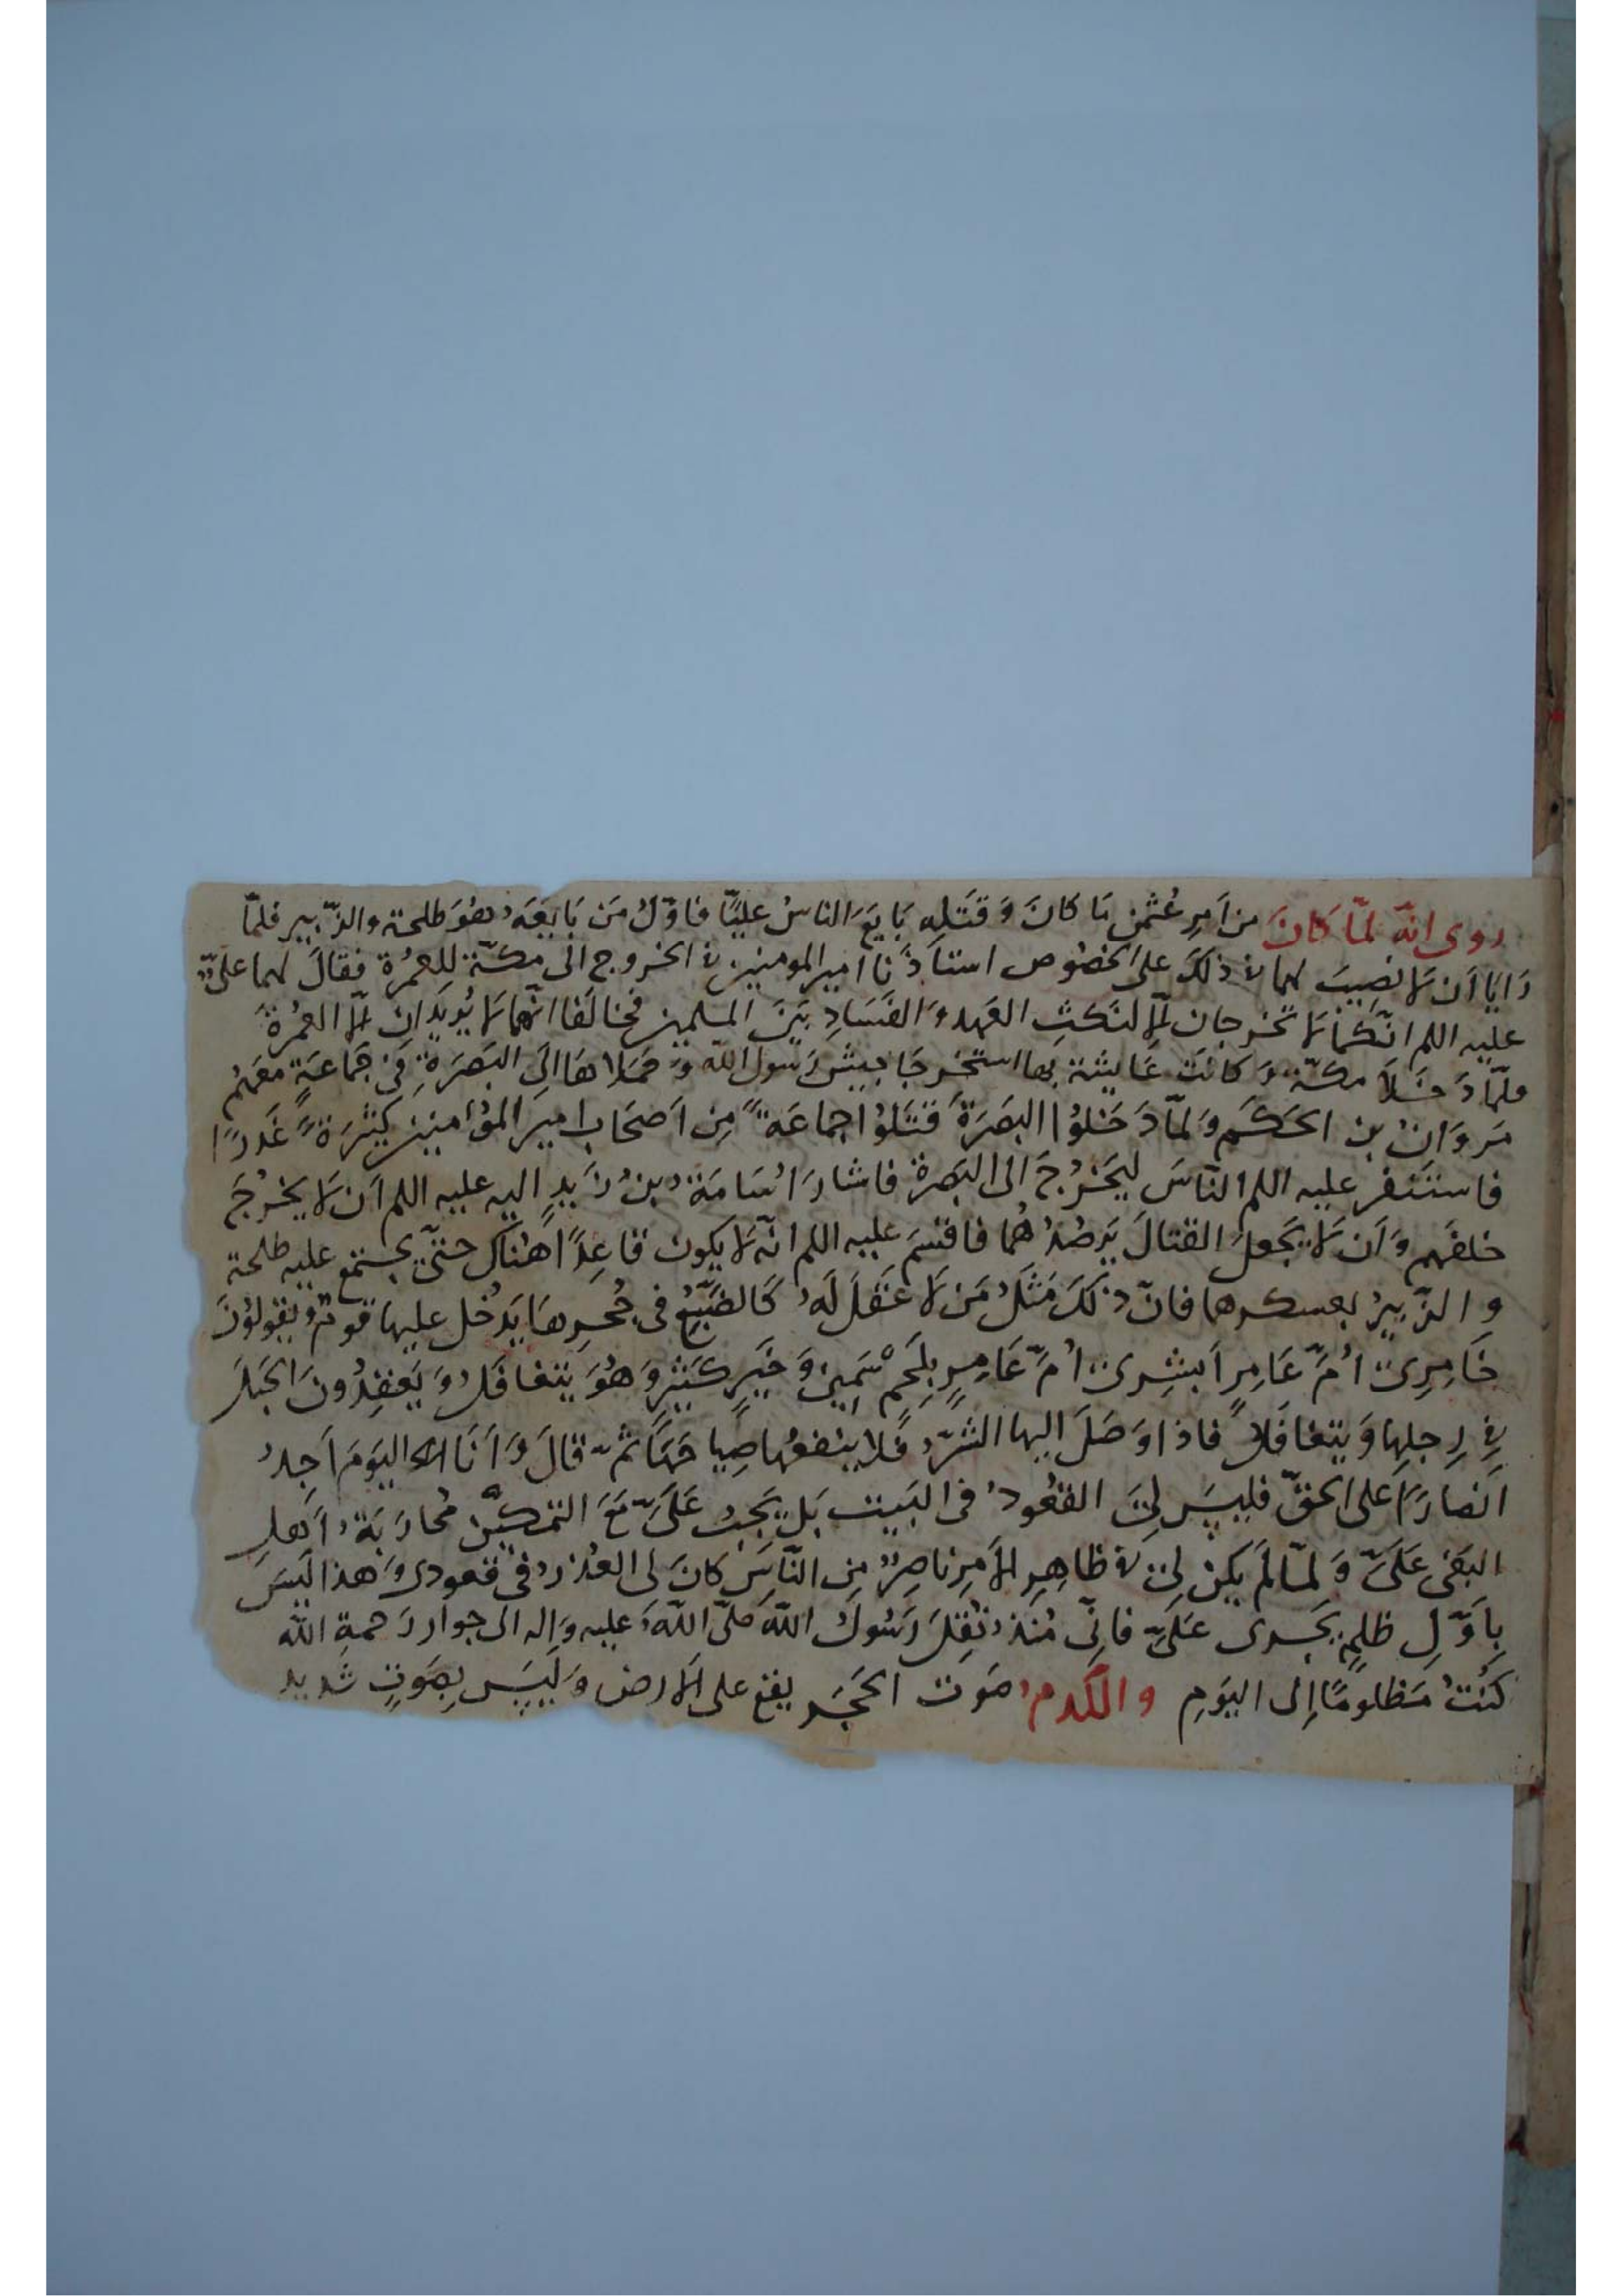 روى انّه لمّا كانَ من اَمرِ عُثمٰن مَا كانَ وَ قَتَلِهِ بَايَعَ الناسُ عليًّا فاوّلُ مَن بَايَعَهُ هُوَ طلحة والزّبير فلمّا
رَاَيا اَن لا نصِيبَ لهما فى ذلكَ على الخصُوص استاذنا امير المومنين فى الخروج الى مكّة للعُمرَة فقالَ لهما علىّ
عليه اللم انّكما لا تخرجان الّا لنكثِ العَهد وَ الفسَادِ بَينَ المسلمين فحَالَفا انّهما لا يُريدان الّا العُمرَة
فلمّا دَخَلاَ مكّة وَ كانَت عَايشة بها استخرجَا حبيسَ رَسول الله وَ حَمَلاهَا الى البَصرَةِ فى جَماعَةٍ معَهُم
مَروَانُ بن الحَكَم وَ لمّا دَخَلوُا البصَرَة قتَلوُا جماعَةً مِن اَصحَاب امير المؤمنين كثيرَةً غَدرًا
فاستَنفر عليه اللم الناسَ ليَخرُجَ الى البَصرَة فاشارَ اُسَامَةُ بنُ زَيدٍ اليه عليه اللم اَن لا يخرُجَ
خلفَهم وَ اَن لا يجعلَ القتالَ يَرصُدُهُما فاقسَم عليه اللم انّه لا يكون قاعِدًا هُناك حتّى يجتمع عليه طلحة
و الزّبيرُ بعسكرهما فانّ ذلكَ مَثلُ مَن لا عَقلَ لَهُ كَالضّبُعِ فى جُحرِهَا يَدخُل عليها قومٌ وَ يَقولوُنَ
خَامِرِى اُمَّ عَامِر اَبشِرِى اُمَّ عَامِرٍ بِلَحمٍ سَمِينٍ وَ خَيرٍ كثيرٍ وَ هُوَ يتغافَلُ وَ يَعقِدُونَ الحَبلَ
فى رِجلِها وَ يتغافَلُ فاذا وَصَلَ اليها الشرّ فلا ينفعُها صِيَاحَهَا ثمّ قالَ وَ اَنَا اليَومَ اَجِدُ
اَنصارًا على الحَقّ فليسَ لِىَ القعُودُ فى البَيت بَل يَجبُ عَلَىَّ مَعَ التمكّن مُحَارَبَةُ اَهلِ
البَغى عَلَىَّ وَ لمّا لَم يَكن لِى فى ظاهِرِ الاَمرِ ناصِرٌ مِن النّاسِ كانَ لى العُذرُ فى قعودى وَ هذا ليسَ
بِاَوّلِ ظلمٍ يَجرى عَلَىَّ فانّى مُنذُ نُقِلَ رَسُولُ الله صَلّى اللّهُ عليه وَ اله الى جوار رَحمةِ الله
كُنتُ مَظلومًا اِلى اليَومِ و اللّدمُ صَوت الحَجَر يقع على الارض وَ لَيسَ بِصَوتٍ شَديد